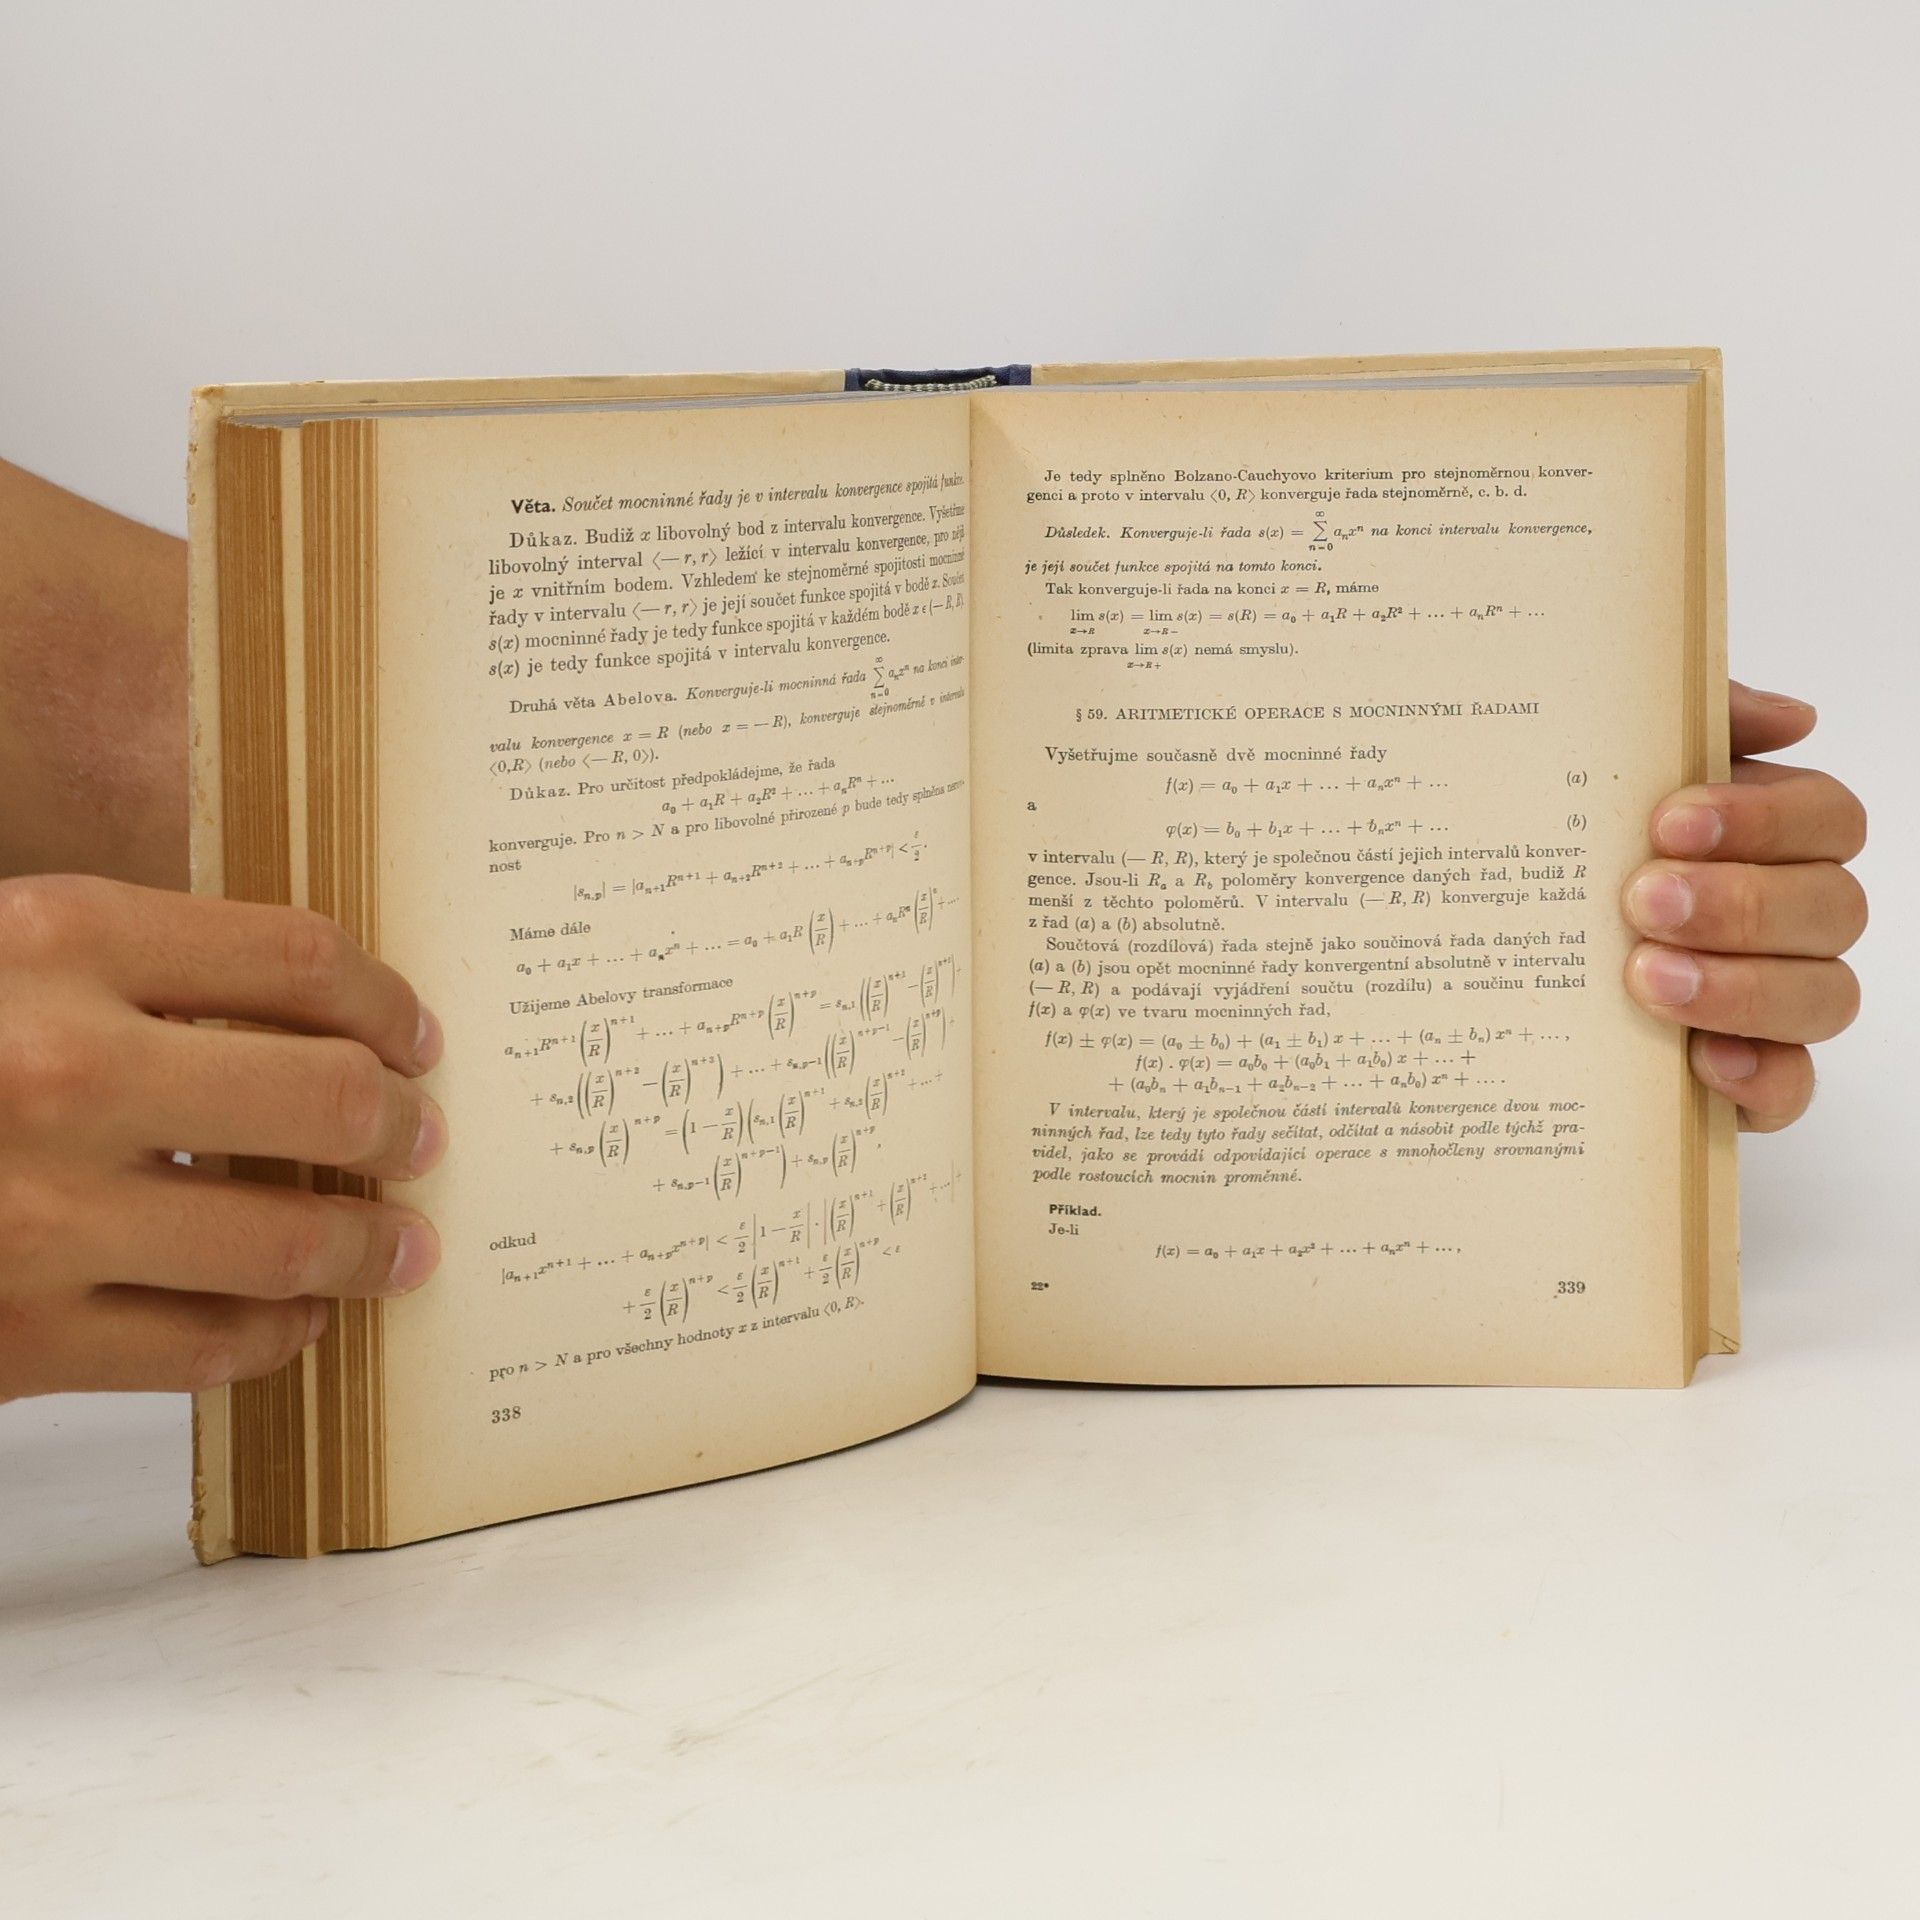 Věta. Součet mocninné řady je v intervalu konvergence spojitá funkce.
Důkaz. Budiž x libovolný bod z intervalu konvergence. Vyšetřme
libovolný interval ⟨— r, r⟩ ležící v intervalu konvergence, pro nějž
je x vnitřním bodem. Vzhledem ke stejnoměrné spojitosti mocninné
řady v intervalu ⟨— r, r⟩ je její součet funkce spojitá v bodě x. Součet
s(x) mocninné řady je tedy funkce spojitá v každém bodě x ε (— R, R).
s(x) je tedy funkce spojitá v intervalu konvergence.
Druhá věta Abelova. Konverguje-li mocninná řada ∑_{n=0}^{∞} aₙxⁿ na konci inter-
valu konvergence x = R (nebo x = — R), konverguje stejnoměrně v intervalu
⟨0,R⟩ (nebo ⟨— R, 0⟩).
Důkaz. Pro určitost předpokládejme, že řada
a₀ + a₁R + a₂R² + ... + aₙRⁿ + ...
konverguje. Pro n > N a pro libovolné přirozené p bude tedy splněna nerov-
nost
|s_{n,p}| = |a_{n+1}R^{n+1} + a_{n+2}R^{n+2} + ... + a_{n+p}R^{n+p}| < ε/2.
Máme dále
a₀ + a₁x + ... + aₙxⁿ + ... = a₀ + a₁R (x/R) + ... + aₙRⁿ (x/R)ⁿ + ....
Užijeme Abelovy transformace
a_{n+1}R^{n+1} (x/R)^{n+1} + ... + a_{n+p}R^{n+p} (x/R)^{n+p} = s_{n,1} ((x/R)^{n+1} — (x/R)^{n+2}) +
+ s_{n,2} ((x/R)^{n+2} — (x/R)^{n+3}) + ... + s_{n,p—1} ((x/R)^{n+p—1} — (x/R)^{n+p}) +
+ s_{n,p} (x/R)^{n+p} = (1 — x/R) (s_{n,1} (x/R)^{n+1} + s_{n,2} (x/R)^{n+2} + ... +
+ s_{n,p—1} (x/R)^{n+p—1}) + s_{n,p} (x/R)^{n+p},
odkud
|a_{n+1}x^{n+1} + ... + a_{n+p}x^{n+p}| < ε/2 |1 — x/R| . |(x/R)^{n+1} + (x/R)^{n+2} + ... | +
+ ε/2 (x/R)^{n+p} < ε/2 (x/R)^{n+1} + ε/2 (x/R)^{n+p} < ε
pro n > N a pro všechny hodnoty x z intervalu ⟨0, R⟩.
338
Je tedy splněno Bolzano-Cauchyovo kriterium pro stejnoměrnou konver-
genci a proto v intervalu ⟨0, R⟩ konverguje řada stejnoměrně, c. b. d.
Důsledek. Konverguje-li řada s(x) = ∑_{n=0}^{∞} aₙxⁿ na konci intervalu konvergence,
je její součet funkce spojitá na tomto konci.
Tak konverguje-li řada na konci x = R, máme
lim_{x→R} s(x) = lim_{x→R—} s(x) = s(R) = a₀ + a₁R + a₂R² + ... + aₙRⁿ + ...
(limita zprava lim_{x→R+} s(x) nemá smyslu).
§ 59. ARITMETICKÉ OPERACE S MOCNINNÝMI ŘADAMI
Vyšetřujme současně dvě mocninné řady
f(x) = a₀ + a₁x + ... + aₙxⁿ + ... (a)
a
φ(x) = b₀ + b₁x + ... + bₙxⁿ + ... (b)
v intervalu (— R, R), který je společnou částí jejich intervalů konver-
gence. Jsou-li Rₐ a R_b poloměry konvergence daných řad, budiž R
menší z těchto poloměrů. V intervalu (— R, R) konverguje každá
z řad (a) a (b) absolutně.
Součtová (rozdílová) řada stejně jako součinová řada daných řad
(a) a (b) jsou opět mocninné řady konvergentní absolutně v intervalu
(— R, R) a podávají vyjádření součtu (rozdílu) a součinu funkcí
f(x) a φ(x) ve tvaru mocninných řad,
f(x) ± φ(x) = (a₀ ± b₀) + (a₁ ± b₁) x + ... + (aₙ ± bₙ) xⁿ + ... ,
f(x) . φ(x) = a₀b₀ + (a₀b₁ + a₁b₀) x + ... +
+ (a₀bₙ + a₁b_{n—1} + a₂b_{n—2} + ... + aₙb₀) xⁿ + ... .
V intervalu, který je společnou částí intervalů konvergence dvou moc-
ninných řad, lze tedy tyto řady sečítat, odčítat a násobit podle týchž pra-
videl, jako se provádí odpovídající operace s mnohočleny srovnanými
podle rostoucích mocnin proměnné.
Příklad.
Je-li
f(x) = a₀ + a₁x + a₂x² + ... + aₙxⁿ + ... ,
22*
339